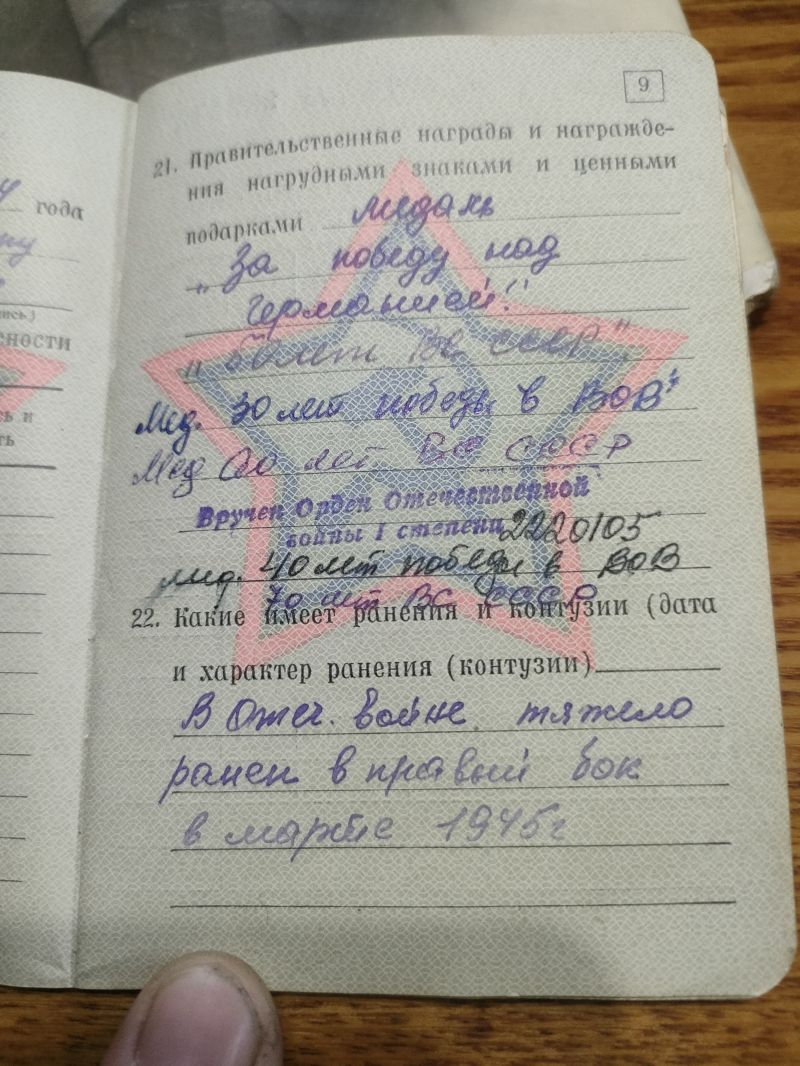 у
года
ну
пись)
сности
ь и
ть
9
21. Правительственные награды и награжде-
ния нагрудными знаками и ценными
подарками медаль
„За победу над
Германией"
лет ВС СССР"
Мед. 30 лет победы в ВОВ"
Мед 60 лет ВС СССР
Вручен Орден Отечественной
войны I степени 2220105
мед. 40 лет победы в ВОВ
70 лет ВС СССР
22. Какие имеет ранения и контузии (дата
и характер ранения (контузии)
В Отеч. войне тяжело
ранен в правый бок
в марте 1945г